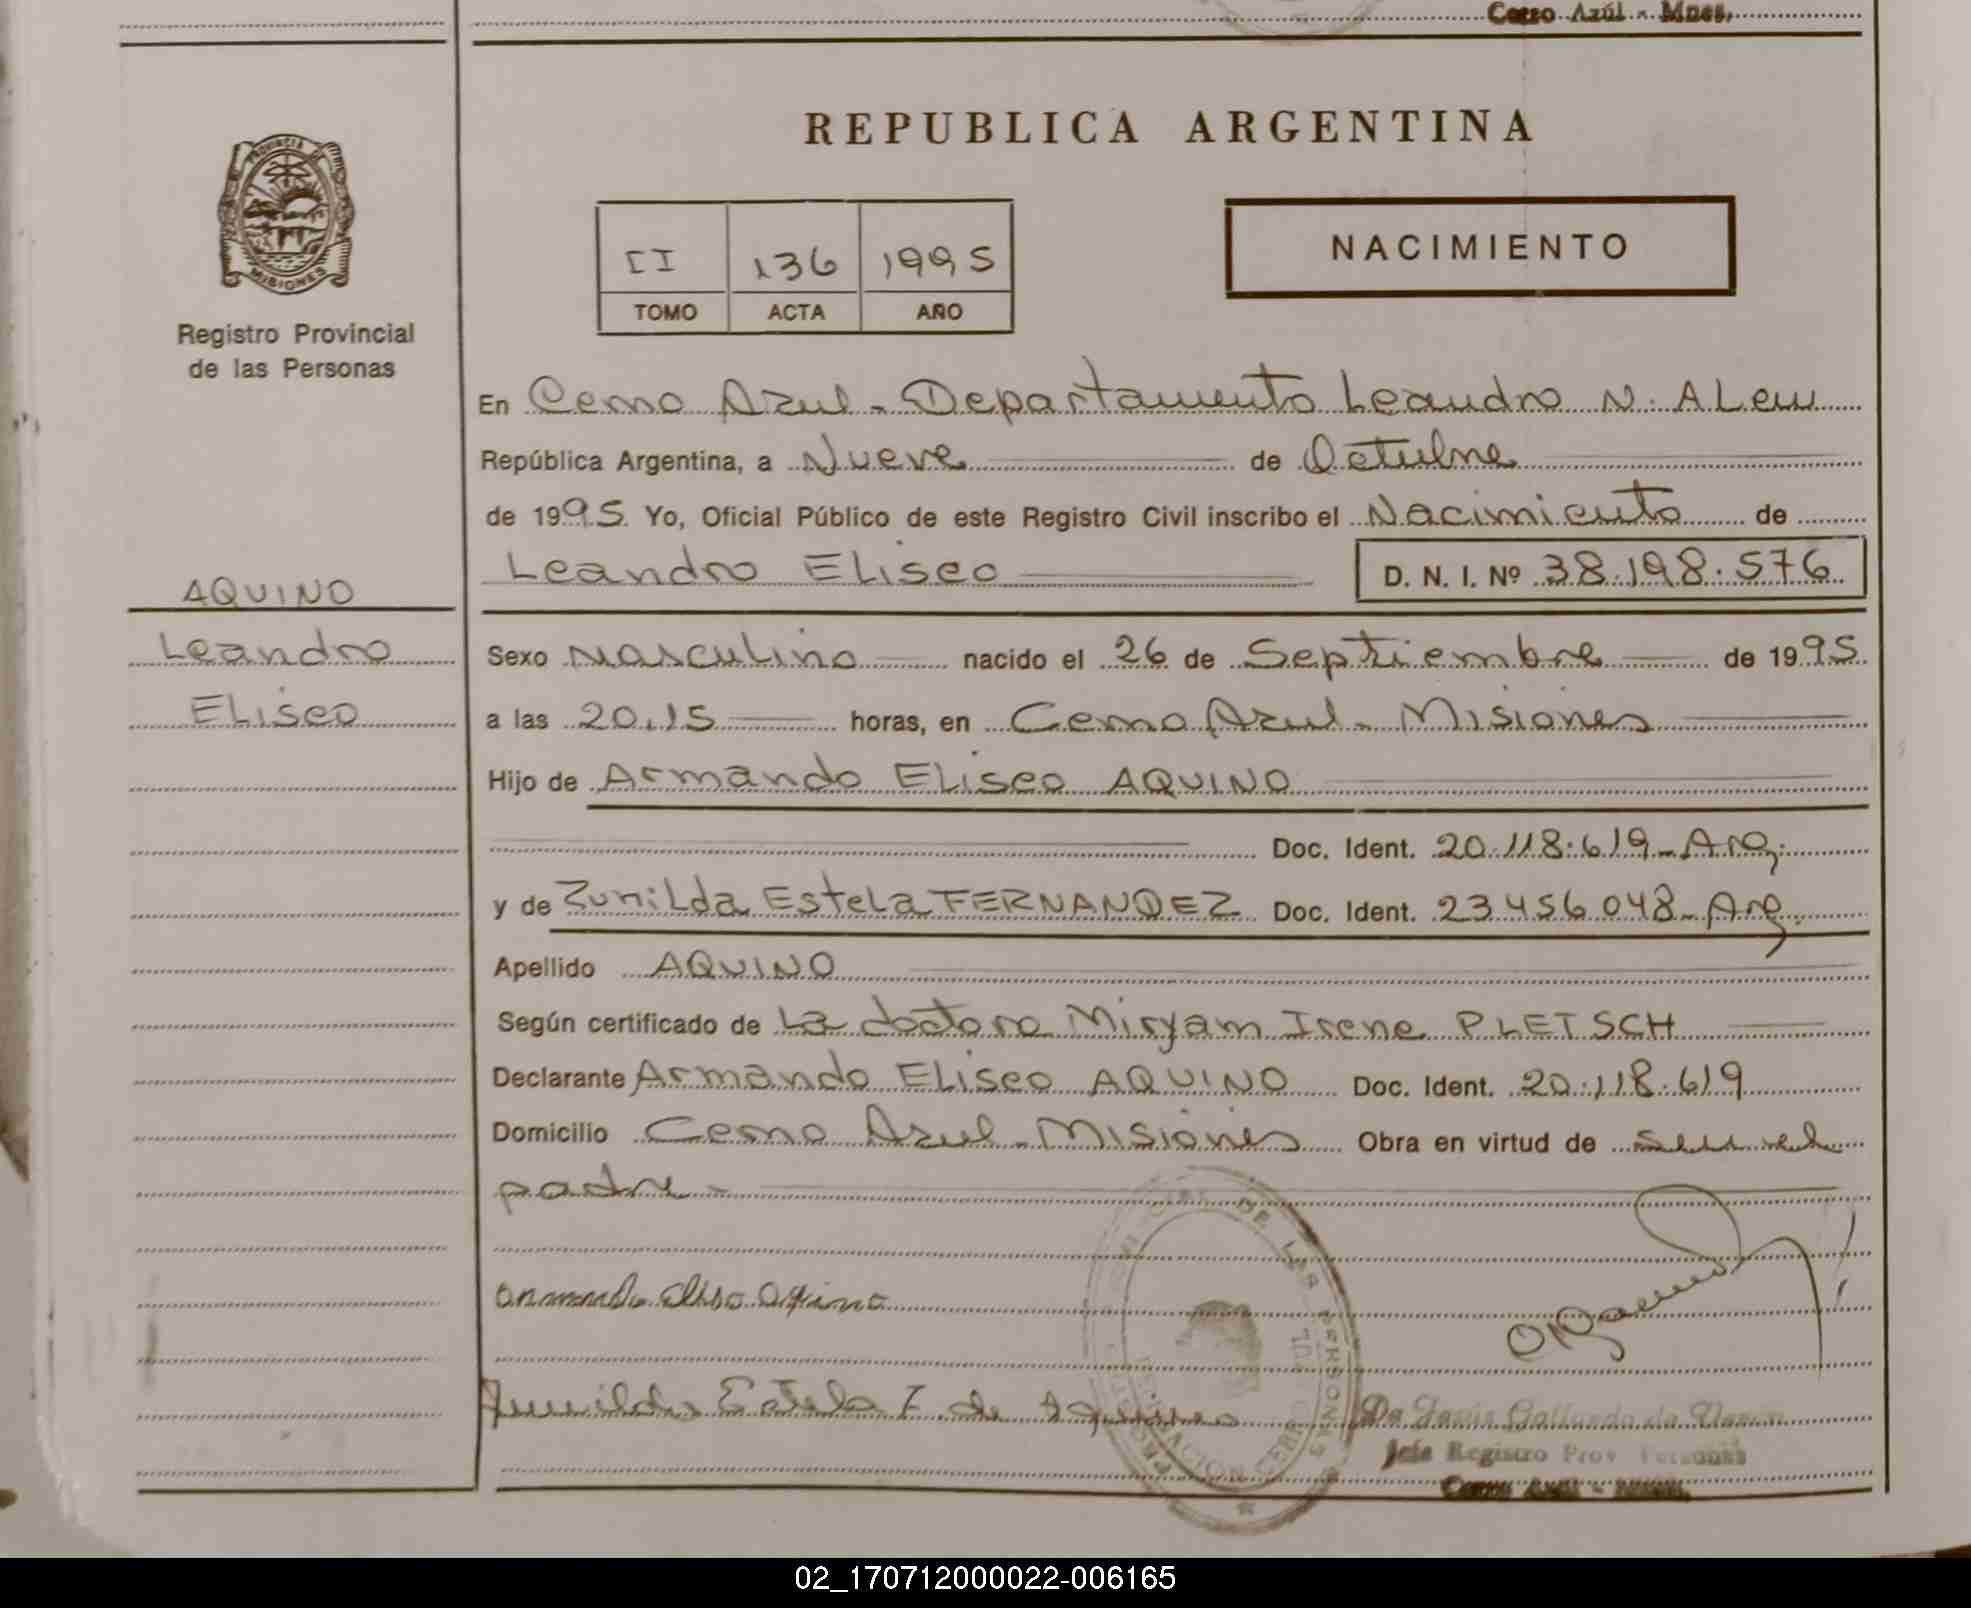 Cerro Azúl - Mnes.
REPUBLICA ARGENTINA
PROVINCIA DE
MISIONES
Registro Provincial
de las Personas
II 136 1995
TOMO ACTA AÑO
NACIMIENTO
En Cerro Azul - Departamento Leandro N. ALem
República Argentina, a Nueve de Octubre
de 1995 Yo, Oficial Público de este Registro Civil inscribo el Nacimiento de
Leandro ELiseo D. N. I. Nº 38.198.576
AQUINO
Leandro
ELiseo
Sexo Masculino nacido el 26 de Septiembre de 1995
a las 20.15 horas, en Cerro Azul - Misiones
Hijo de Armando ELiseo AQUINO
Doc. Ident. 20.118.619 - Arg.
y de Zunilda Estela FERNANDEZ Doc. Ident. 23456048 - Arg.
Apellido AQUINO
Según certificado de La doctora Miryam Irene PLETSCH
Declarante Armando ELiseo AQUINO Doc. Ident. 20.118.619
Domicilio Cerro Azul - Misiones Obra en virtud de ser el
padre -
DE LAS PERSONAS
Armando Eliseo Aquino
Zunilda Estela F. de Aquino
Jefe Registro Prov. Personas
Cerro Azúl - Mnes.
02_170712000022-006165